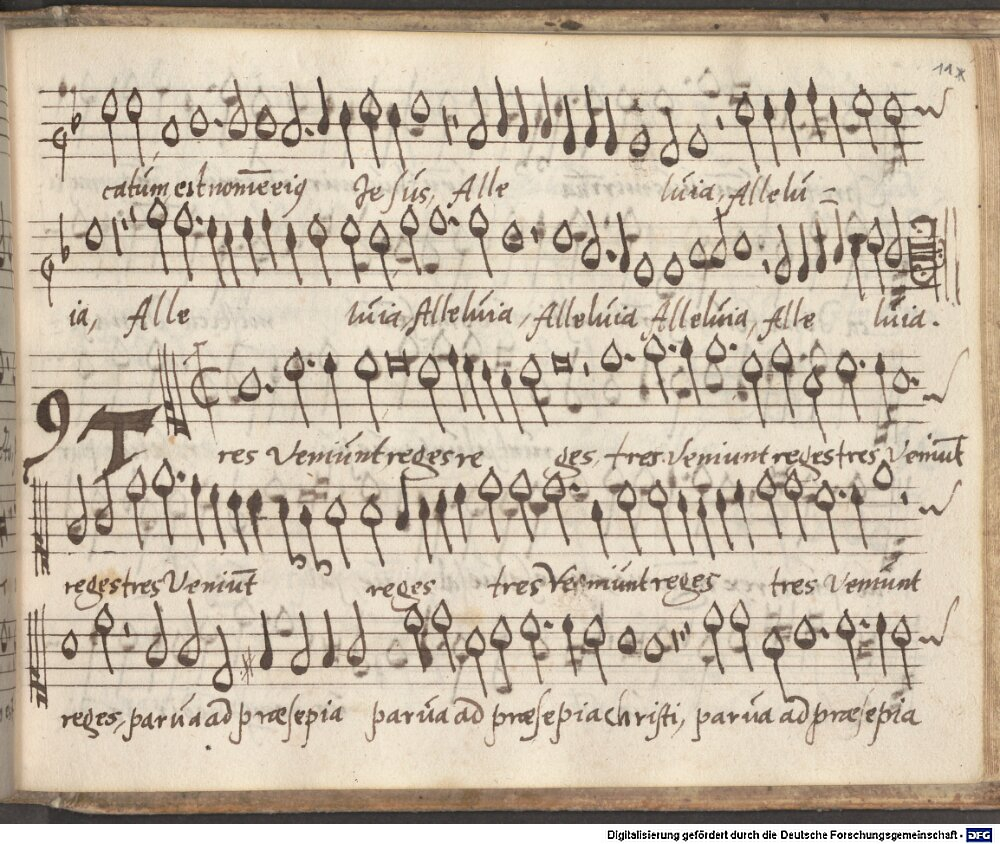 catum est nomē eiꝰ Jesus, Alle luia, Allelu =
ia, Alle luia Alleluia, Alleluia Alleluia, Alle luia.
9 Tres Veniunt reges re ges, tres Veniunt reges tres Veniūt
reges tres Veniūt reges tres Veniunt reges tres Veniunt
reges, parua ad præsepia parua ad præsepia Christi, parua ad præsepia
Digitalisierung gefördert durch die Deutsche Forschungsgemeinschaft - DFG